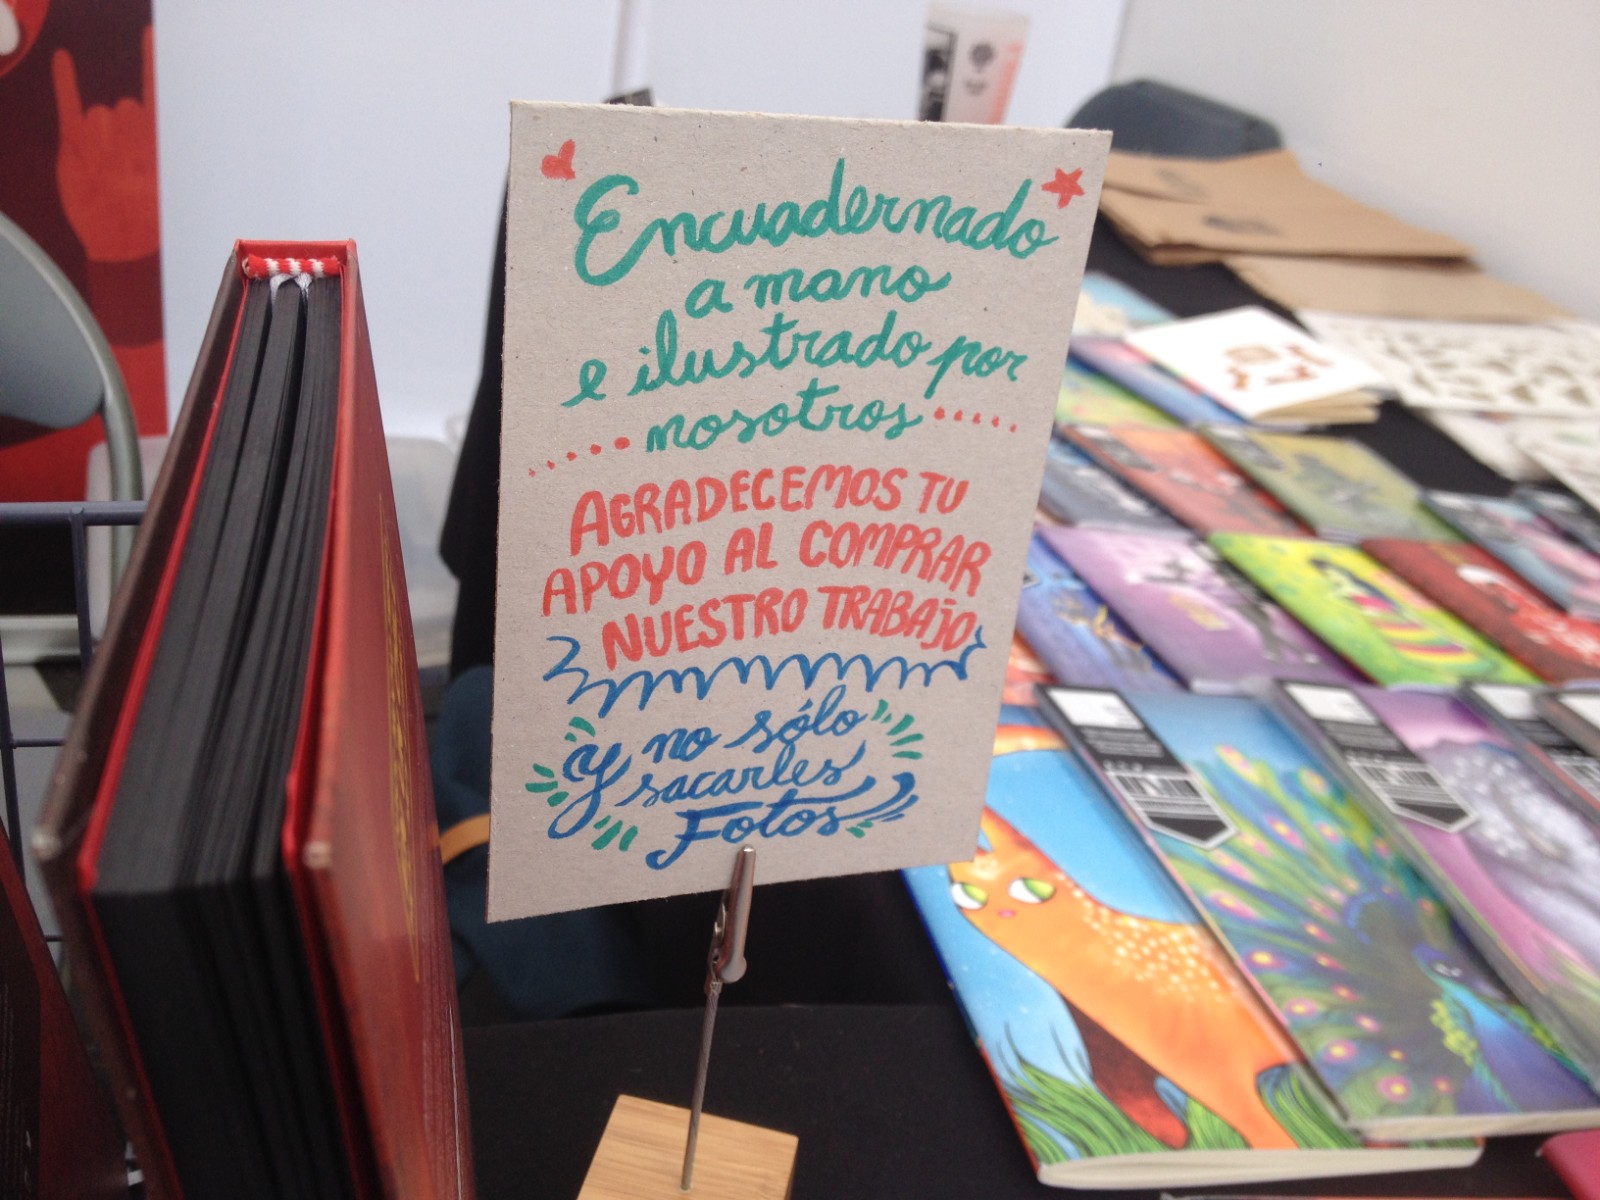 Encuadernado
a mano
e ilustrado por
nosotros
AGRADECEMOS TU
APOYO AL COMPRAR
NUESTRO TRABAJO
y no sólo
sacarles
Fotos